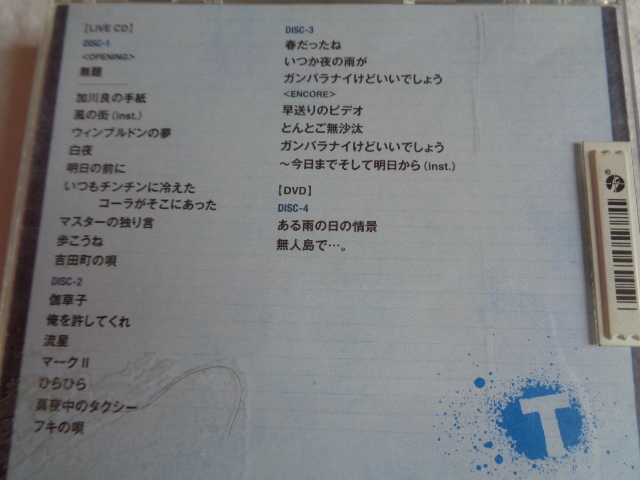 [LIVE CD]
DISC-1
<OPENING>
無題
加川良の手紙
風の街(inst.)
ウィンブルドンの夢
白夜
明日の前に
いつもチンチンに冷えた
コーラがそこにあった
マスターの独り言
歩こうね
吉田町の唄
DISC-2
伽草子
俺を許してくれ
流星
マークⅡ
ひらひら
真夜中のタクシー
フキの唄
DISC-3
春だったね
いつか夜の雨が
ガンバラナイけどいいでしょう
<ENCORE>
早送りのビデオ
とんとご無沙汰
ガンバラナイけどいいでしょう
～今日までそして明日から(inst.)
[DVD]
DISC-4
ある雨の日の情景
無人島で…。
T